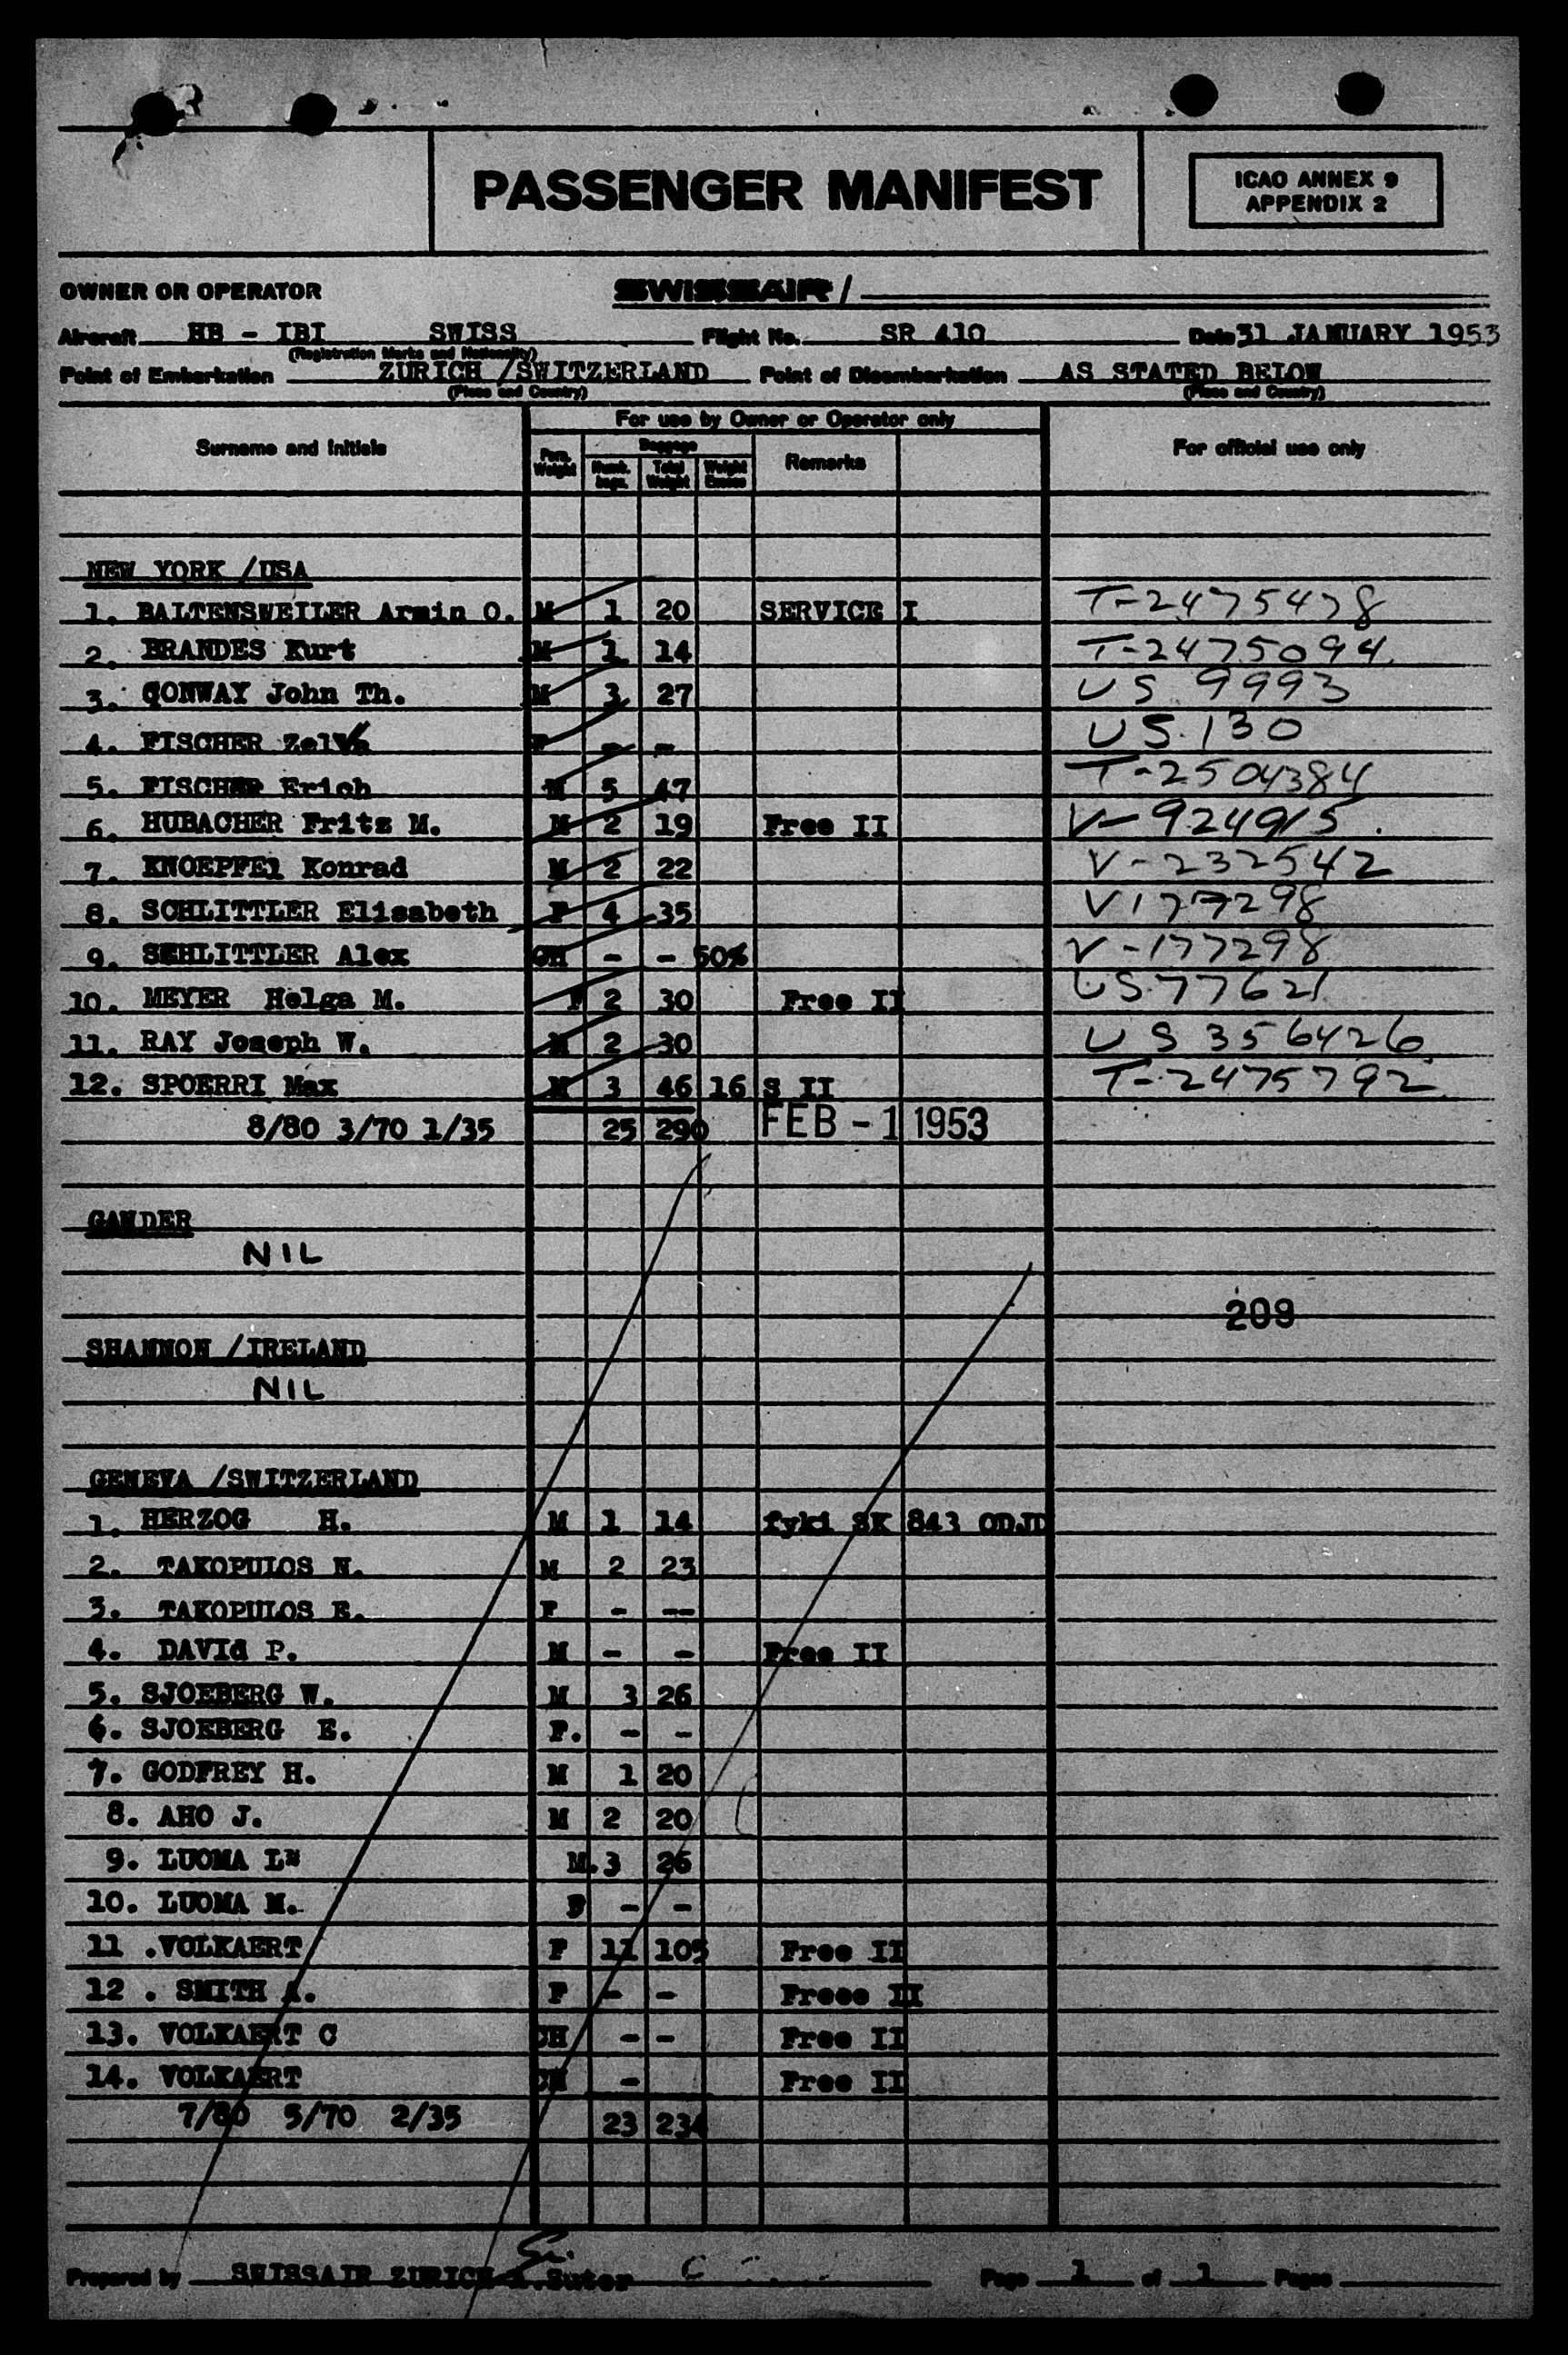 PASSENGER MANIFEST
ICAO ANNEX 9
APPENDIX 2
OWNER OR OPERATOR SWISSAIR /
Aircraft HB - IBI SWISS Flight No. SR 410 Date 31 JANUARY 1953
(Registration Marks and Nationality)
Point of Embarkation ZURICH /SWITZERLAND Point of Disembarkation AS STATED BELOW
(Place and Country) (Place and Country)
For use by Owner or Operator only
Surname and Initials Pers. Weight Baggage Remarks For official use only
Numb. Total Weight Weight Excess
NEW YORK /USA
1. BALTENSWEILER Armin O. M 1 20 SERVICE I T-2475478
2. BRANDES Kurt M 1 14 T-2475094
3. CONWAY John Th. M 3 27 US 9993
4. FISCHER F - - US.130
5. FISCHER Erich M 5 47 T-2504384
6. HUBACHER Fritz M. M 2 19 Free II V-924915
7. KNOEPFEl Konrad M 2 22 V-232542
8. SCHLITTLER Elisabeth F 4 35 V177298
9. SEHLITTLER Alex CH - - 50% V-177298
10. MEYER Helga M. F 2 30 Free II US77621
11. RAY Joseph W. M 2 30 US 356426
12. SPOERRI Max M 3 46 16 S II T-2475792
8/80 3/70 1/35 25 290 FEB -1 1953
GANDER
NIL
209
SHANNON /IRELAND
NIL
GENEVA /SWITZERLAND
1. HERZOG H. M 1 14 fyki SK 843 ODJD
2. TAKOPULOS N. M 2 23
3. TAKOPULOS E. F - --
4. DAVId P. M - - Free II
5. SJOEBERG W. M 3 26
6. SJOEBERG E. F. - -
7. GODFREY H. M 1 20
8. AHO J. M 2 20
9. LUOMA L M. 3 26
10. LUOMA M. F - -
11 .VOLKAERT F 11 105 Free II
12 . SMITH A. F - - Freee II
13. VOLKAERT C CH - - Free II
14. VOLKAERT CH - Free II
7/80 5/70 2/35 23 234
Prepared by SWISSAIR ZURICH Suter Page 1 of 1 Pages